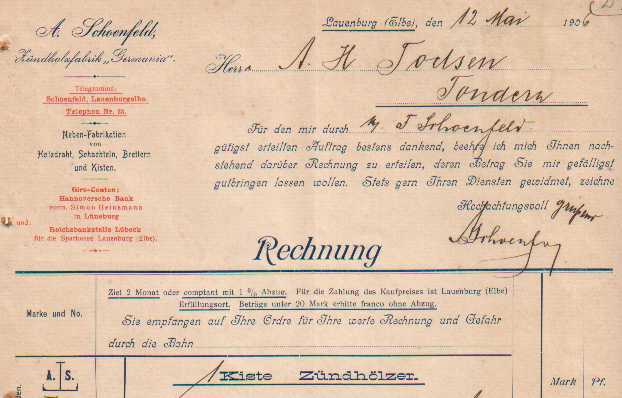 Lauenburg (Elbe), den 12 Mai 1906
A. Schoenfeld,
Zündholzfabrik „Germania“.
Herrn A. H Todsen
Tondern
Telegramm:
Schoenfeld, Lauenburgelbe.
Telephon Nr.
Neben-Fabrikation
von
Holzdraht, Schachteln, Brettern
und Kisten.
Giro-Conten:
Hannoversche Bank
vorm. Simon Heinemann
in Lüneburg
und:
Reichsbankstelle Lübeck
für die Sparkasse Lauenburg (Elbe).
Für den mir durch T Schoenfeld
gütigst erteilten Auftrag bestens dankend, beehre ich mich Ihnen nach-
stehend darüber Rechnung zu erteilen, deren Betrag Sie mir gefälligst
gutbringen lassen wollen. Stets gern Ihren Diensten gewidmet, zeichne
Hochachtungsvoll
Rechnung
Ziel 2 Monat oder comptant mit 1 % Abzug. Für die Zahlung des Kaufpreises ist Lauenburg (Elbe)
Erfüllungsort. Beträge unter 20 Mark erbitte franco ohne Abzug.
Marke und No.
Sie empfangen auf Ihre Ordre für Ihre werte Rechnung und Gefahr
durch die Bahn
A. S.
1 Kiste Zündhölzer.
Mark Pf.